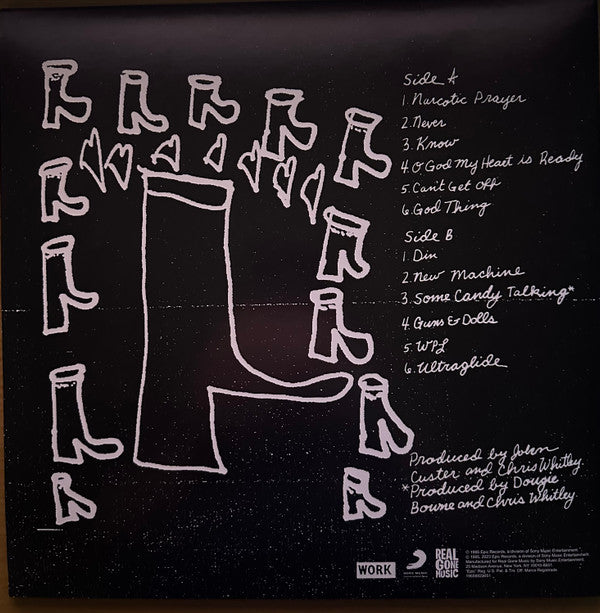 Side A
1. Narcotic Prayer
2. Never
3. Know
4. O God My Heart is Ready
5. Can't Get Off
6. God Thing
Side B
1. Din
2. New Machine
3. Some Candy Talking*
4. Guns & Dolls
5. WPL
6. Ultraglide
Produced by John
Custer and Chris Whitley.
*Produced by Dougie
Bowne and Chris Whitley.
WORK
REAL
GONE
MUSIC
Epic Records, a division of Sony Music Entertainment.
Epic Records, a division of Sony Music Entertainment.
Manufactured for Real Gone Music by Sony Music Entertainment,
25 Madison Avenue, New York, NY 10010
"Epic" Reg. U.S. Pat. & Tm. Off. Marca Registrada.